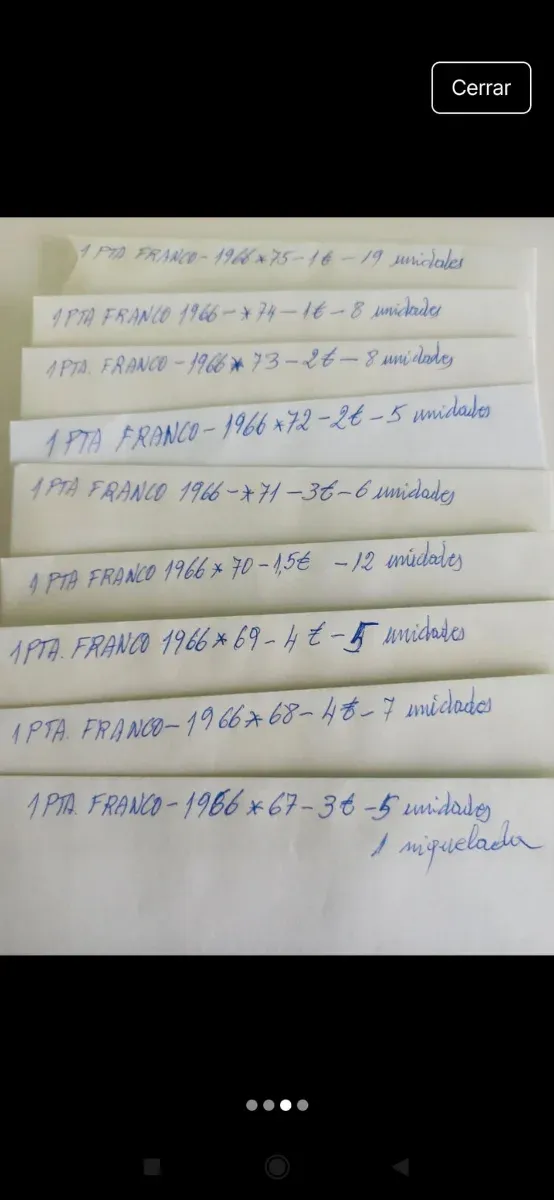 Cerrar
1 PTA. FRANCO - 1966*75 - 1€ - 19 unidades
1 PTA FRANCO 1966 - *74 - 1€ - 8 unidades
1 PTA. FRANCO - 1966*73 - 2€ - 8 unidades
1 PTA FRANCO - 1966*72 - 2€ - 5 unidades
1 PTA FRANCO 1966 - *71 - 3€ - 6 unidades
1 PTA FRANCO 1966*70 - 1,5€ - 12 unidades
1 PTA. FRANCO 1966*69 - 4€ - 5 unidades
1 PTA. FRANCO - 1966*68 - 4€ - 7 unidades
1 PTA. FRANCO - 1966*67 - 3€ - 5 unidades
1 niquelada